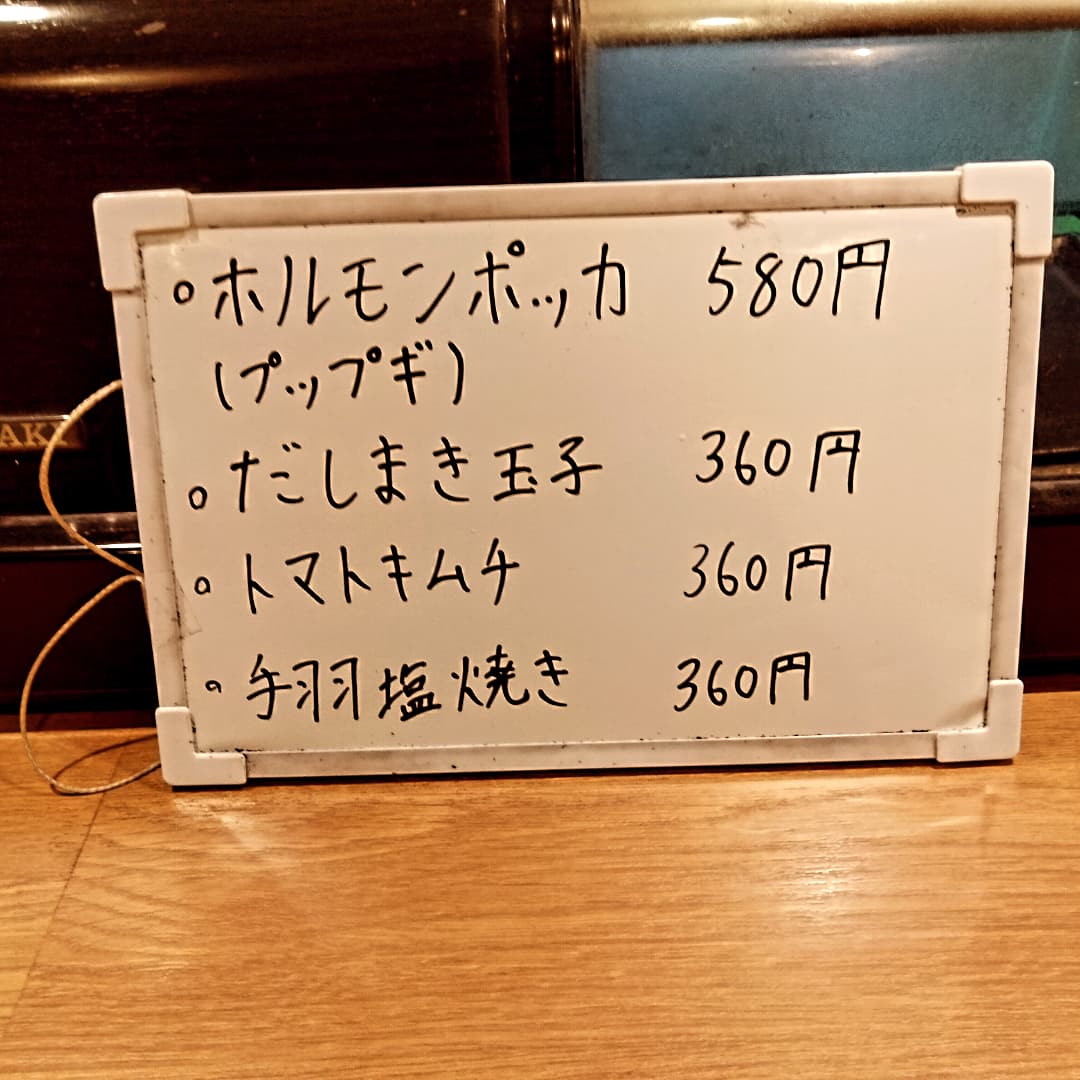 ◦ホルモンポッカ 580円
(プップギ)
◦だしまき玉子 360円
◦トマトキムチ 360円
◦手羽塩焼き 360円
AKI